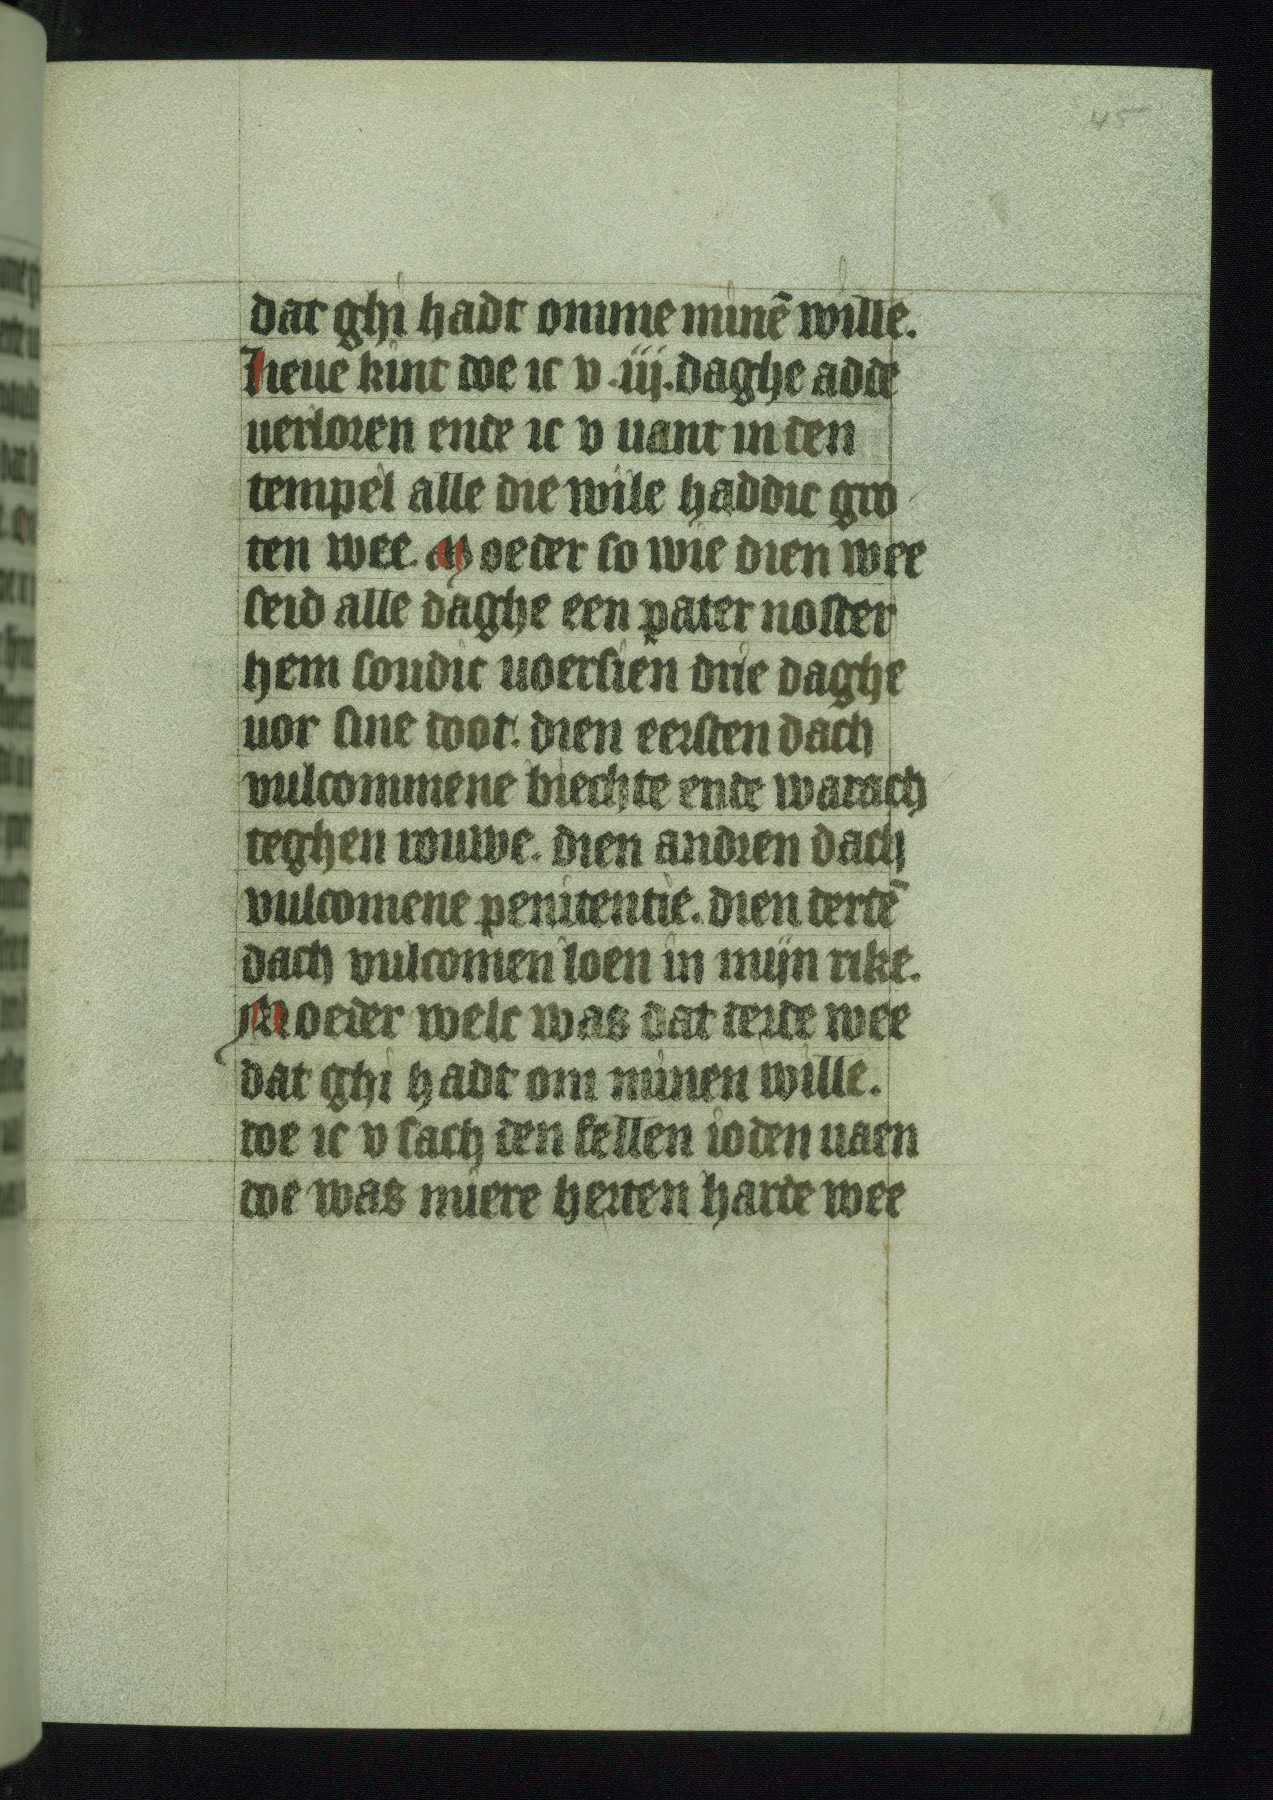 45
dat ghi hadt omme minē wille.
lieue kint doe ic v .iij. daghe adde
uerloren ende ic v uant in den
tempel alle die wile haddic gro
ten wee. Moeder so wie dien wee
seid alle daghe een pater noster
hem soudic uoersien drie daghe
uor sine doot. dien eersten dach
vulcommene biechte ende warach
teghen rouwe. dien andren dach
vulcomene penitentie. dien derdē
dach vulcomen loen in mijn rike.
Moeder welc was dat derde wee
dat ghi hadt om minen wille.
doe ic v sach den fellen ioden uaen
doe was miere herten harde wee